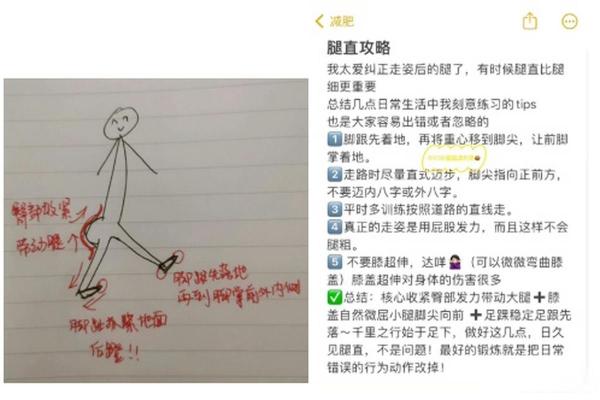 臀部收紧
带动腿
脚跟先落地
再到脚掌前外内侧
脚趾抓紧地面
后蹬!!
减肥
腿直攻略
我太爱纠正走姿后的腿了，有时候腿直比腿
细更重要
总结几点日常生活中我刻意练习的tips
也是大家容易出错或者忽略的
1️⃣脚跟先着地，再将重心移到脚尖，让前脚
掌着地。
2️⃣走路时尽量直式迈步，脚尖指向正前方，
不要迈内八字或外八字。
3️⃣平时多训练按照道路的直线走。
4️⃣真正的走姿是用屁股发力，而且这样不会
腿粗。
5️⃣ 不要膝超伸，达咩🙅🏻‍♀️（可以微微弯曲膝
盖）膝盖超伸对身体的伤害很多
✅总结：核心收紧臀部发力带动大腿➕膝
盖自然微屈小腿脚尖向前 ➕足踝稳定足跟先
落～千里之行始于足下，做好这几点，日久
见腿直，不是问题！最好的锻炼就是把日常
错误的行为动作改掉！